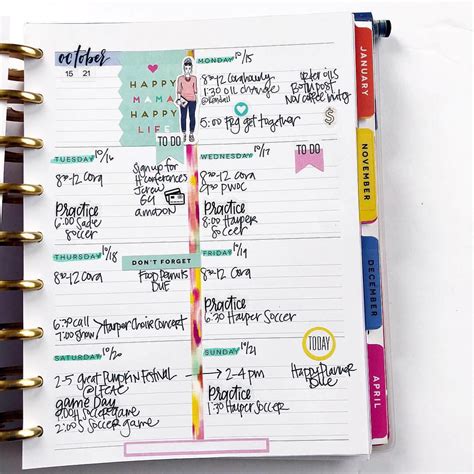 october
15 21
HAPPY
MAMA
HAPPY
LIFE
MONDAY 10/15
8-12 Cora
1:30 oil change
@Kendall
5:00 Frg get together
$
TO DO
TUESDAY 10/16
8-12 Cora
Practice
6:00 Sadie
Soccer
Sign up for
Conferences
Jcrew
64
amazon
WEDNESDAY 10/17
TO DO
8-12 Cora
PWOC
Practice
8:00 Harper
Soccer
THURSDAY 10/18
8-12 Cora
6:30 call
7:00 show / Harper Choir Concert
DON'T FORGET
Food Donuts
DUE
FRIDAY 10/19
8-12 Cora
Practice
6:30 Harper Soccer
SATURDAY 10/20
2-5 great Pumpkin Festival
game Day
Soccer game
2:00 S Soccer game
SUNDAY 10/21
2-4 pm
Practice
1:30 Harper Soccer
TODAY
Happy Planner
JANUARY
NOVEMBER
DECEMBER